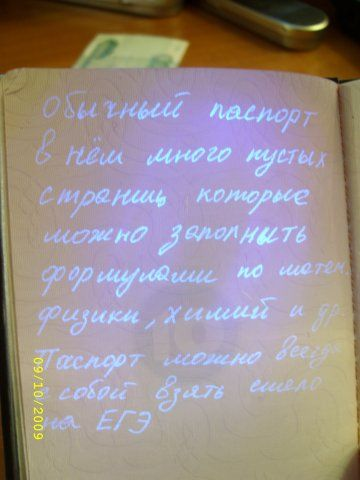 Обычный паспорт
в нём много пустых
страниц которые
можно заполнить
формулами по матем.
физики, химий и др.
Паспорт можно всегда
с собой взять смело
на ЕГЭ
09/10/2009